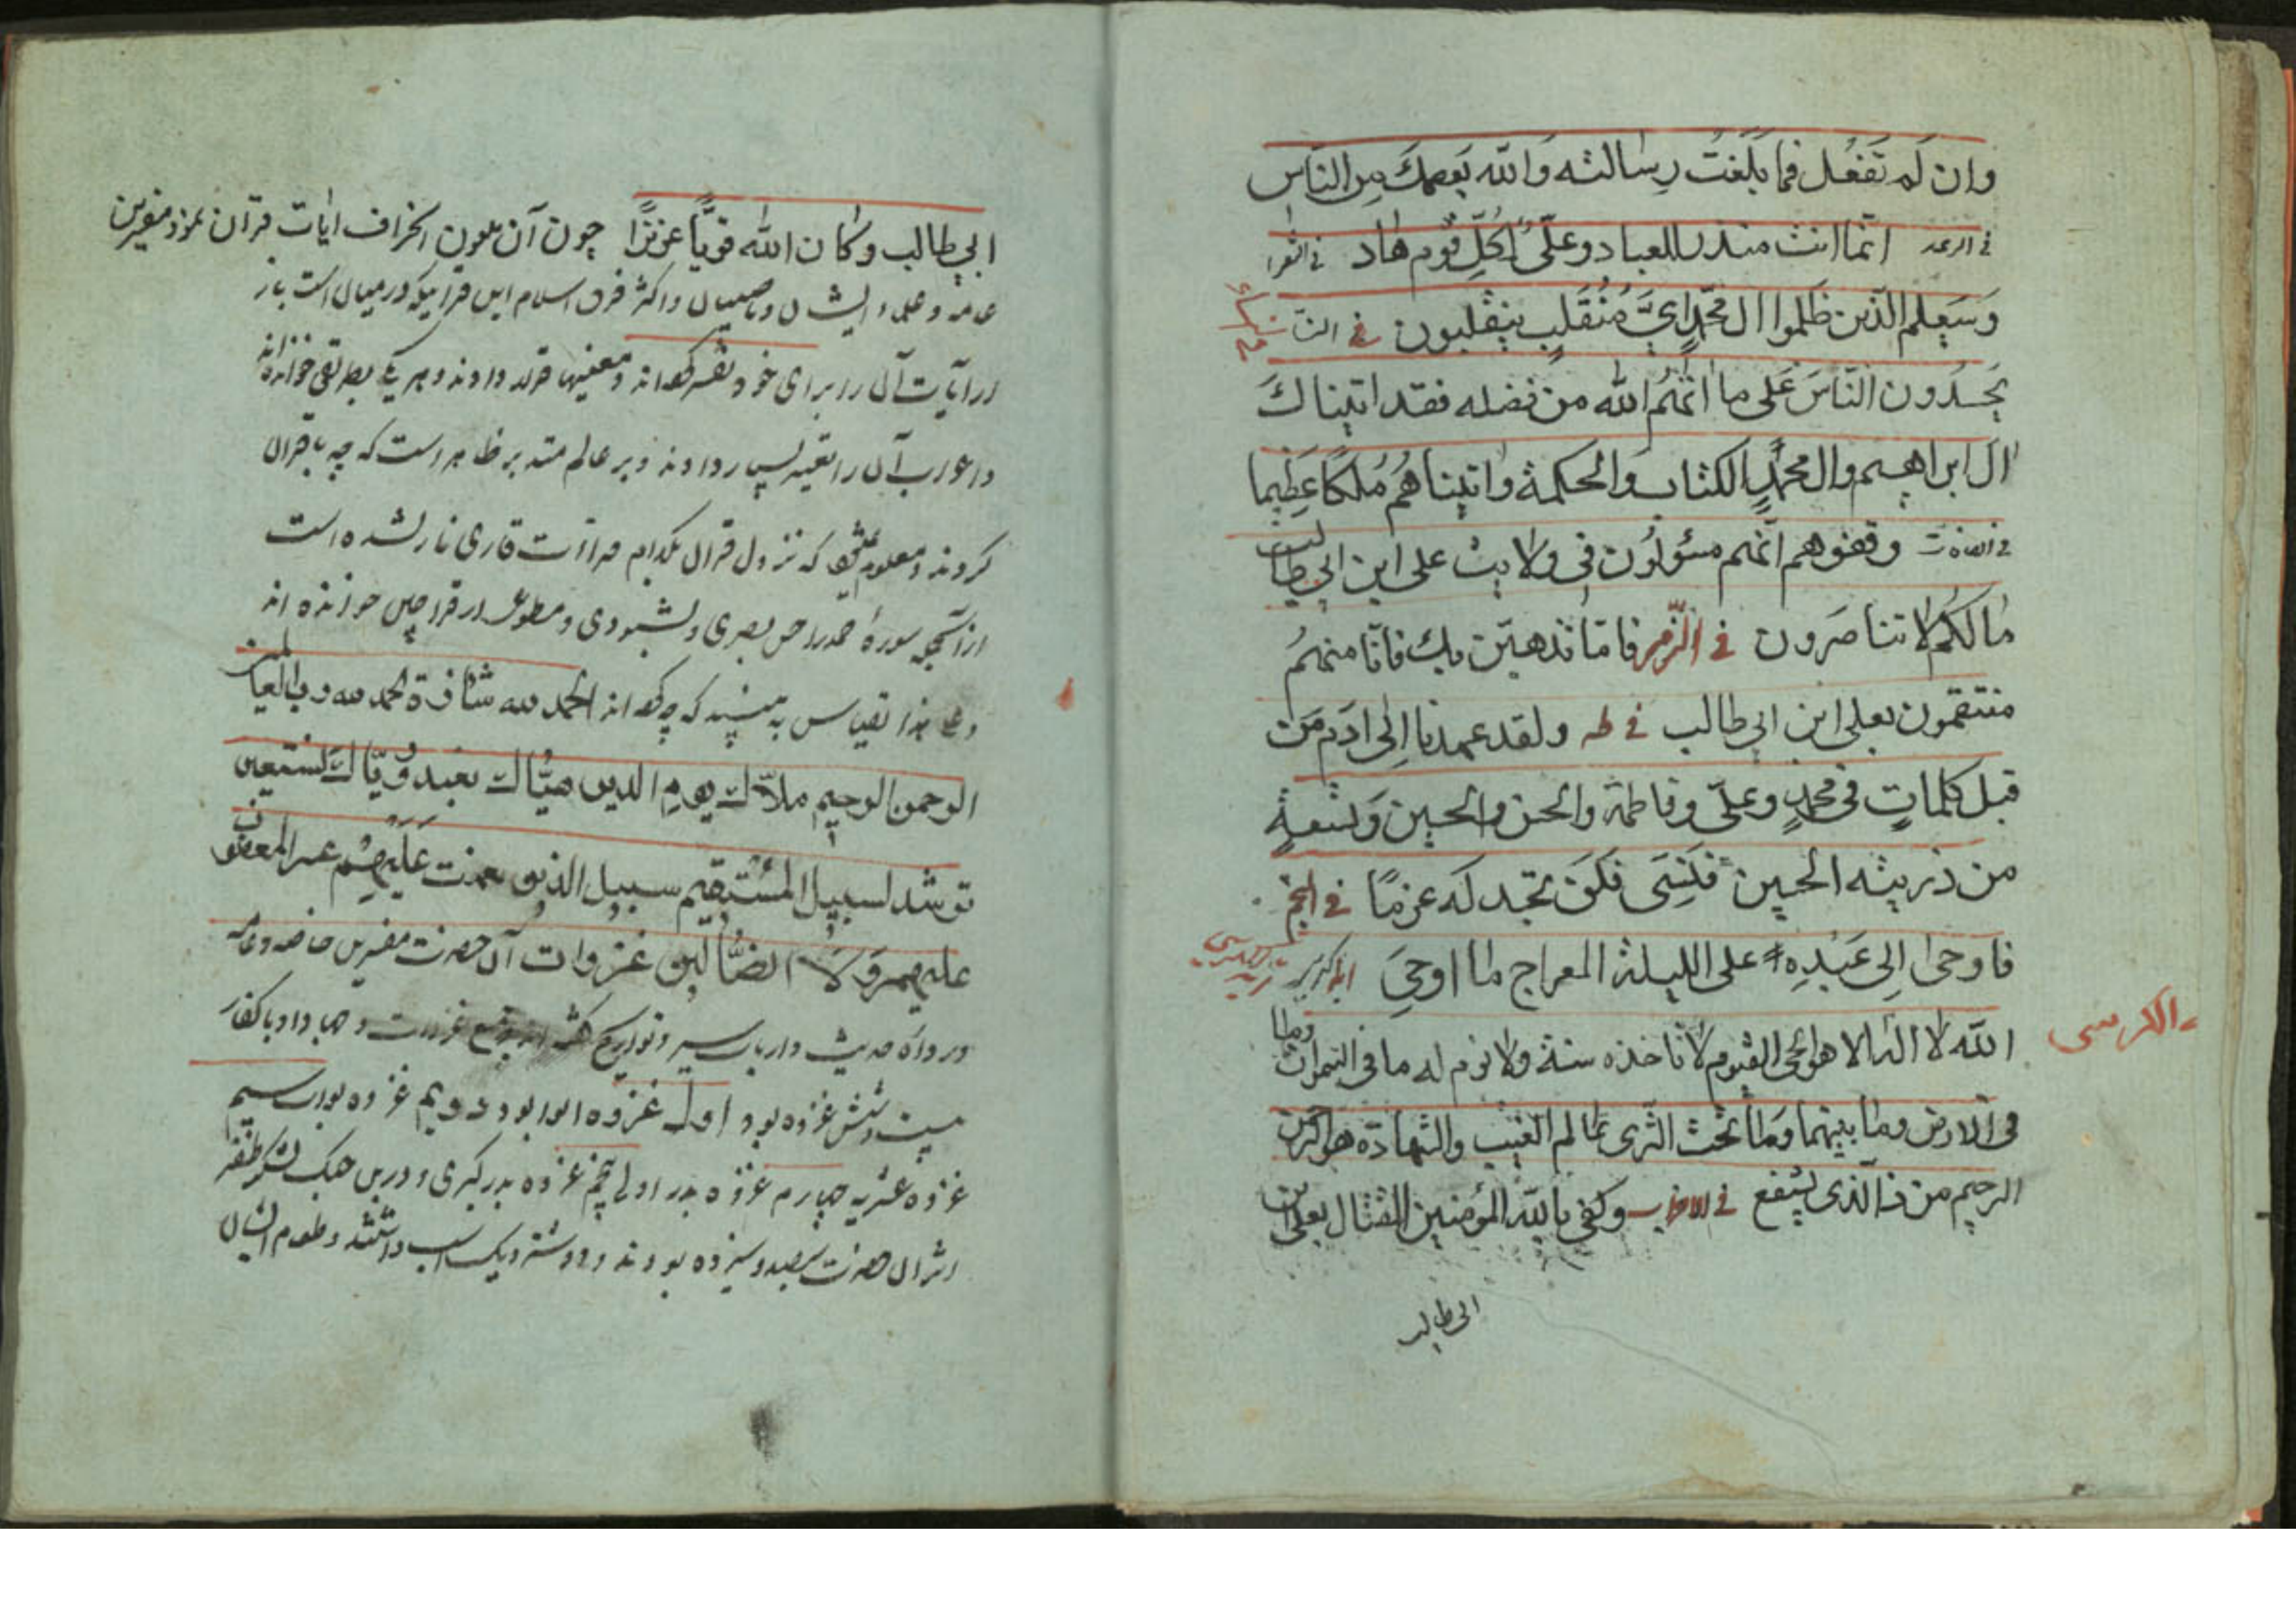 وان لم تفعل فما بلغت رسالته والله يعصمك من الناس
في الرعد انما انت منذر للعباد وعلي لكل قوم هاد في الشعرا
وسيعلم الذين ظلموا ال محمد اي منقلب ينقلبون في النساء
يحسدون الناس على ما اتهم الله من فضله فقد اتينا
ال ابراهيم وال محمد الكتاب والحكمة واتيناهم ملكا عظيما
في الصافات وقفوهم انهم مسؤلون في ولايت على ابن ابي طالب
ما لكم لا تناصرون في الزمر فاما نذهبن بك فانا منهم
منتقمون بعلي ابن ابي طالب في طه ولقد عهدنا الى ادم من
قبل كلمات في محمد وعلي وفاطمة والحسن والحسين وتسعة
من ذريته الحسين فنسى فلم نجد له عزما في النجم
فاوحى الى عبده على الليلة المعراج ما اوحى
الكرسى
الله لا اله الا هو الحي القيوم لا تاخذه سنة ولا نوم له ما في السموات وما
في الارض وما بينهما وما تحت الثرى عالم الغيب والشهادة هو الرحمن
الرحيم من ذا الذي يشفع في الاحزاب وكفى بالله المؤمنين القتال بعلي ابن
ابي طالب
ابي طالب وكان الله قويا عزيزا چون آن ملعون انحراف ايات قرآن نمود مفسرين
عامه و علماء ايشان و اكثر فرق اسلام اين قرآنيكه درميان است باز
آيات آن را براى خود تفسير كرده اند و معنيها قرار دادند و هر يك بطريقى خوانده اند
و اعراب آن را تغيير بسيار دادند و بر عالم متدبر ظاهر است كه چه باقرآن
كردند و معلوم نيست كه نزول قرآن بكدام قراءت قارى نازل شده است
از آنجمله سوره حمد را حسن بصرى و خوانده اند
الحمد لله رب العالمين
الرحمن الرحيم ملاك يوم الدين هياك نعبد وياك نستعين
سبيل المستقيم سبيل الذين نعمت عليهم غير المغضوب
عليهم ولا الضالين غزوات آن حضرت مفسرين خاصه و عامه
و رواه حديث و ارباب سير و تواريخ و جهاد او با كفار
بيست و شش غزوه بود اول غزوه ابوا بود دويم غزوه بواط سيم
غزوه عشيره چهارم غزوه بدر اولى پنجم غزوه بدر كبرى و درين جنك لشكر ظفر
اثر آن حضرت سيصد و سيزده بودند و دو شتر و يك اسب داشتند و طعام ايشان